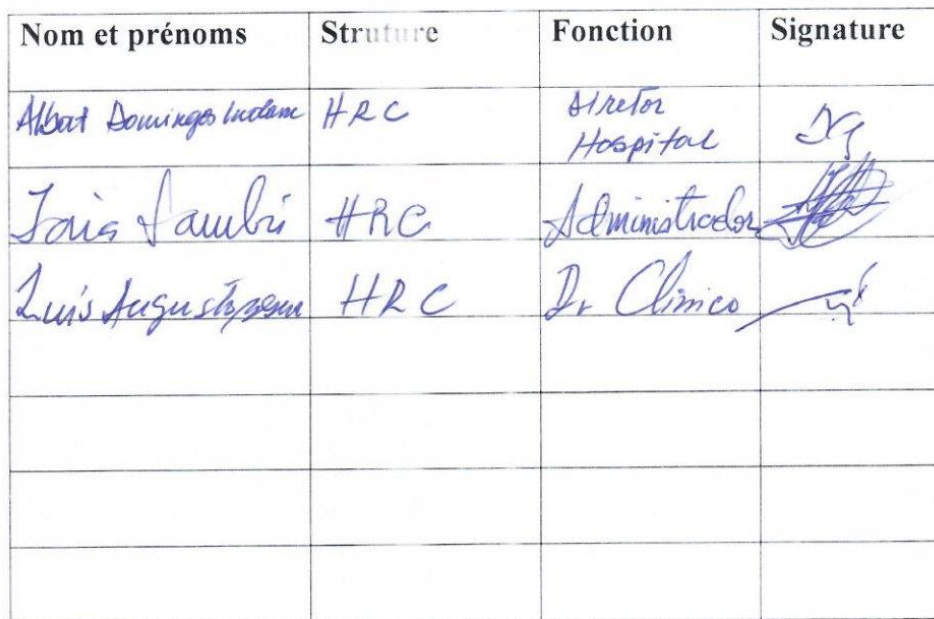 Nom et prénoms Struture Fonction Signature
Albat Domingos Indami HRC Diretor
Hospital
HRC Administrador
Luís HRC Dr Clínico